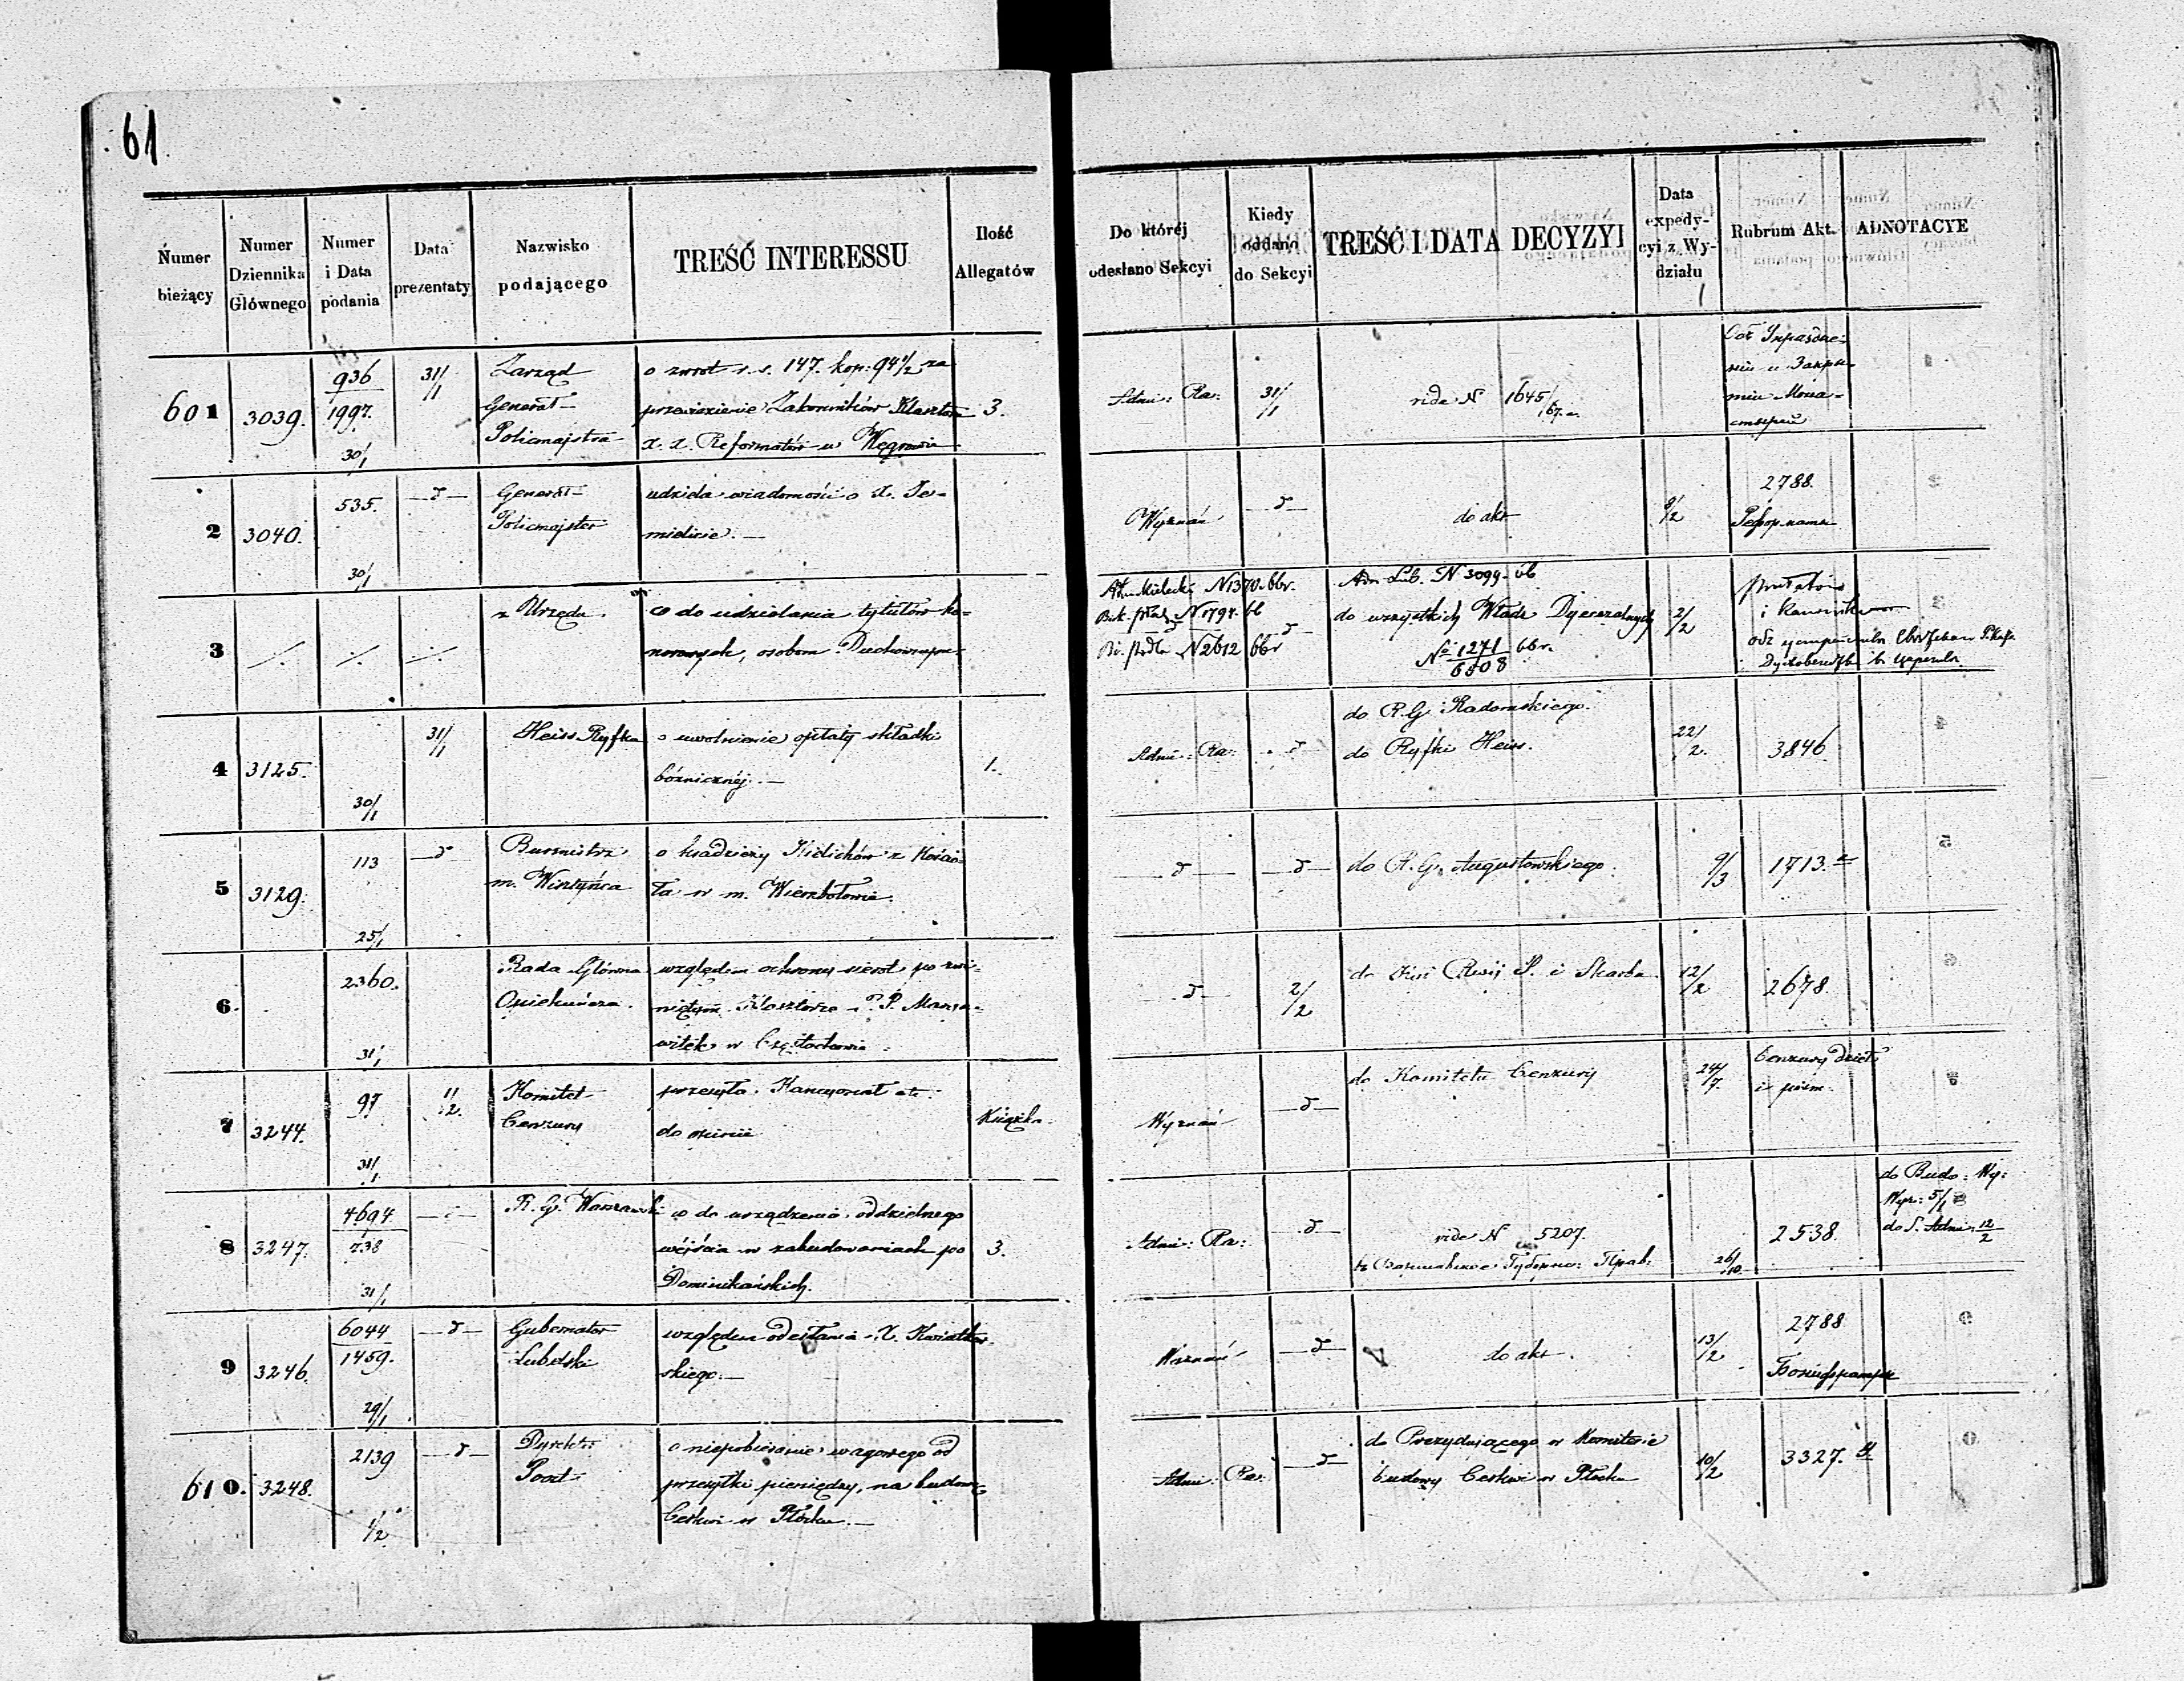 61
Numer
bieżący
Numer
Dziennika
Głównego
Numer
i Data
podania
Data
prezentaty
Nazwisko
podającego
TREŚĆ INTERESSU
Ilość
Allegatów
Do której
odesłano Sekcyi
Kiedy
oddano
do Sekcyi
TREŚĆ I DATA DECYZYI
Data
expedy-
cyi z Wy-
działu
Rubrum Akt.
ADNOTACYE
601
3039.
936
1997.
30/1
31/1
Zarząd
Generał-
Policmajstra
o zwrot r. s. 147. kop: 94 1/2 za
przewiezienie Zakonników Klasztoru
X. X. Reformatów w Węgrowie
3.
Adm: Ra:
31/1
vide N 1645/67
2
3040.
535.
30/1
— d —
Generał-
Policmajster
udziela wiadomości o X. Je-
mielicie. —
Wyznań
— d —
do akt
8/2
2788.
3
z Urzędu.
co do udzielania tytułów ho-
norowych, osobom Duchownym
N 1370. 66 r.
N 1794. 66
N 2612 66 r
d
Adm Lub. N 3099. 66
do wszystkich Władz Dyecezalnych
No 1271 66 r.
6508
2/2
4
3125.
30/1
31/1
Heiss Ryfka
o uwolnienie opłaty składki
bóżnicznéj. —
1.
Adm: Ra:
d
do R. G. Radomskiego.
do Ryfki Heiss.
22/2.
3846
5
3129.
113
25/1
— d
Burmistrz
m. Wisztyńca
o kradzieży Kielichów z Kościo-
ła w m. Wierzbołowie.
— d —
— d —
do R. G. Augustowskiego.
9/3
1713.
6.
2360.
31/1
Rada Główna
Opiekuńcza.
względem ochrony sierot po zwi-
niętym Klasztorze P. P. Marya-
witek w Częstochowie
— d —
2/2
do Kisi Rwij P. i Skarbu
12/2
2678.
7
3244.
97
31/1
1/2.
Komitet
Cenzury
przesyła Kancyonał etc.
do opinii
Książka.
Wyznań
— d —
do Komitetu Cenzury
24/7.
Cenzury dzieł
i pism.
8
3247.
4694
738
31/1
R. G. Warszawski
co do urządzenia oddzielnego
wéjścia w zabudowaniach po
Dominikańskich.
3.
Adm: Ra:
— d —
vide N 5207.
26/10.
2538.
do Budo: Wy:
do S. Adm: 12/2
9
3246.
6044
1459.
29/1
— d —
Gubernator
Lubelski
względem odesłania X. Kwiatkow-
skiego. —
Wyznań
— d —
do akt.
13/2
2788
610.
3248.
2139
1/2
— d —
Dyrektor
Poczt
o niepobieranie wagowego od
przesyłki pieniędzy, na budowę
Cerkwi w Płocku. —
Adm: Ra:
— d —
do Prezydującego w Komitecie
budowy Cerkwi w Płocku
10/2
3327.